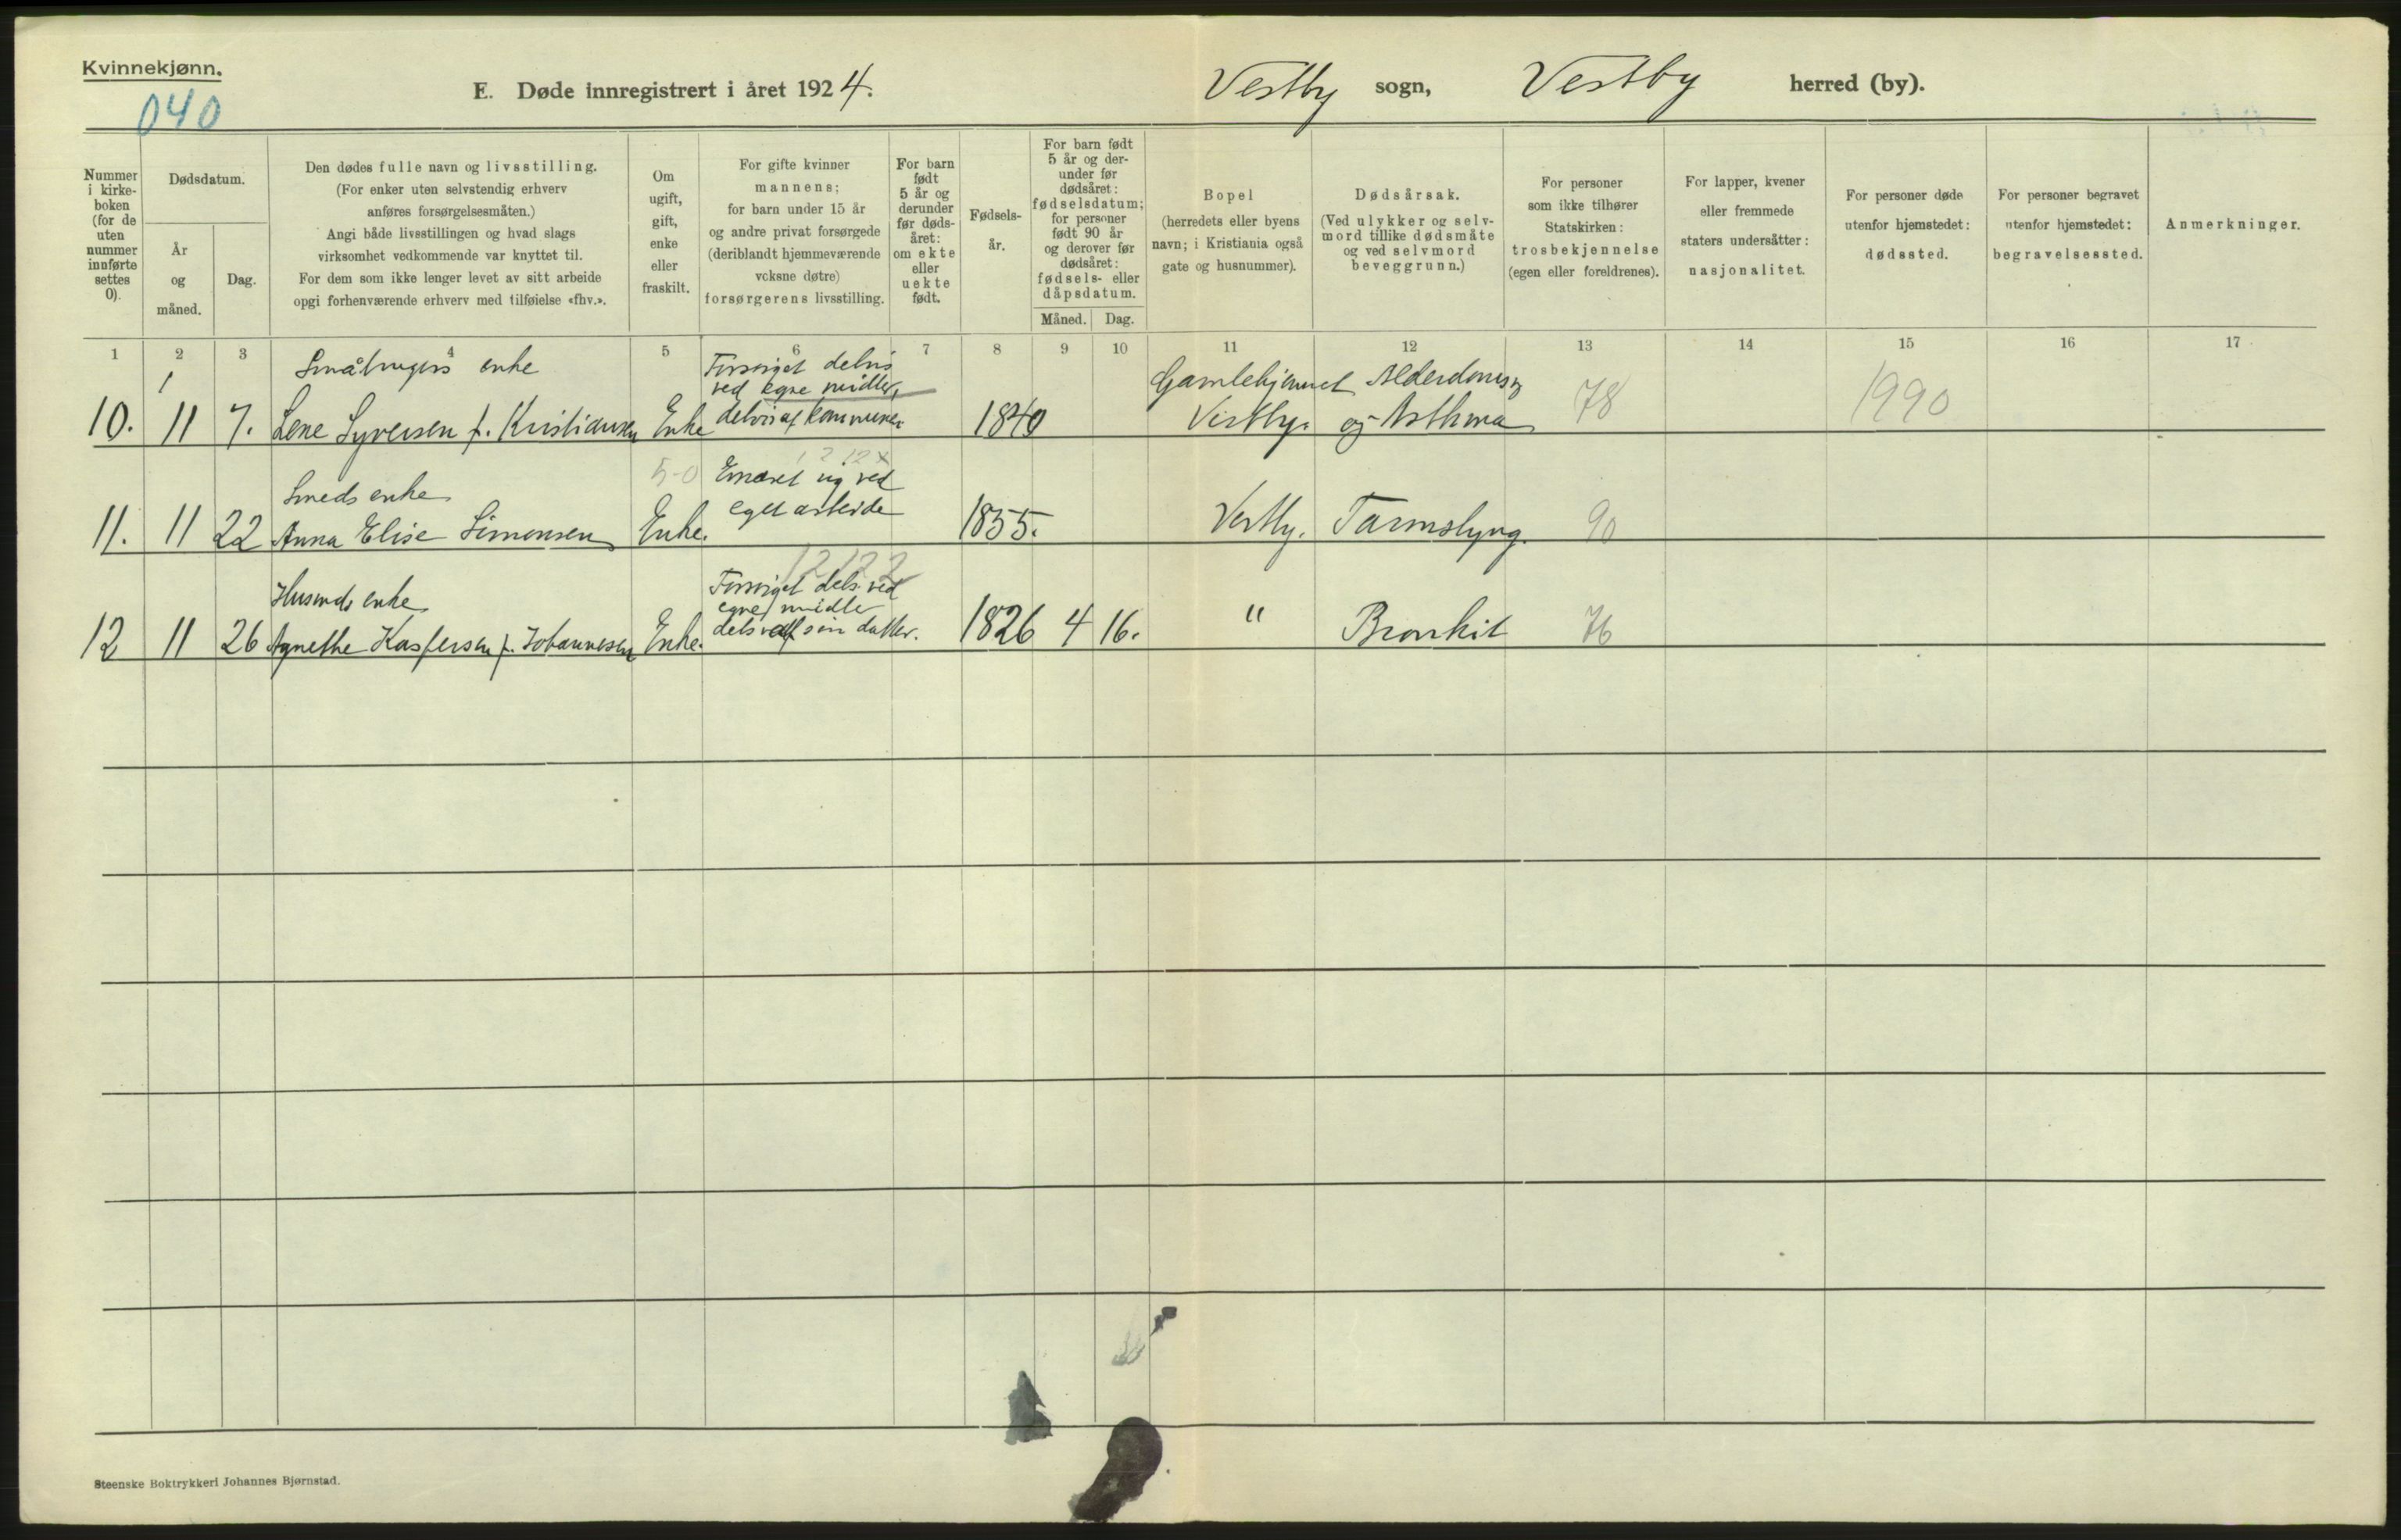 Kvinnekjønn.
040
E. Døde innregistrert i året 1924.
Vestby sogn, Vestby herred (by).
Nummer i kirke-boken (for de uten nummer innførte settes 0).
Dødsdatum.
År og måned.
Dag.
Den dødes fulle navn og livsstilling.
(For enker uten selvstendig erhverv
anføres forsørgelsesmåten.)
Angi både livsstillingen og hvad slags
virksomhet vedkommende var knyttet til.
For dem som ikke lenger levet av sitt arbeide
opgi forhenværende erhverv med tilføielse «fhv.».
Om
ugift,
gift,
enke
eller
fraskilt.
For gifte kvinner
mannens;
for barn under 15 år
og andre privat forsørgede
(deriblandt hjemmeværende
voksne døtre)
forsørgerens livsstilling.
For barn
født
5 år og
derunder
før døds-
året:
om ekte
eller
uekte
født.
Fødsels-
år.
For barn født
5 år og der-
under før
dødsåret:
fødselsdatum;
for personer
født 90 år
og derover før
dødsåret:
fødsels- eller
dåpsdatum.
Måned. Dag.
Bopel
(herredets eller byens
navn; i Kristiania også
gate og husnummer).
Dødsårsak.
(Ved ulykker og selv-
mord tillike dødsmåte
og ved selvmord
beveggrunn.)
For personer
som ikke tilhører
Statskirken:
trosbekjennelse
(egen eller foreldrenes).
For lapper, kvener
eller fremmede
staters undersåtter:
nasjonalitet.
For personer døde
utenfor hjemstedet:
dødssted.
For personer begravet
utenfor hjemstedet:
begravelsessted.
Anmerkninger.
1 2 3 4 5 6 7 8 9 10 11 12 13 14 15 16 17
Småbrugers enke
Forsørget delvis
ved egne midler,
Gamlehjemmet Alderdomssv
10. 11 7. Lene Syversen f. Kristiansen Enke delvis af kommunen 1840 Vestby. og Asthma 78 1990
5-0
Smeds enke
Ernæret sig ved
eget arbeide
11. 11 22 Anna Elise Simonsen Enke. 1855. Vestby. Tarmslyng. 90
12122
Husmds enke
Forsørget dels ved
egne midler
12 11 26 Agnethe Kaspersen f. Johannesen Enke. dels af sin datter. 1826 4 16. " Bronkit 76
Steenske Boktrykkeri Johannes Bjørnstad.